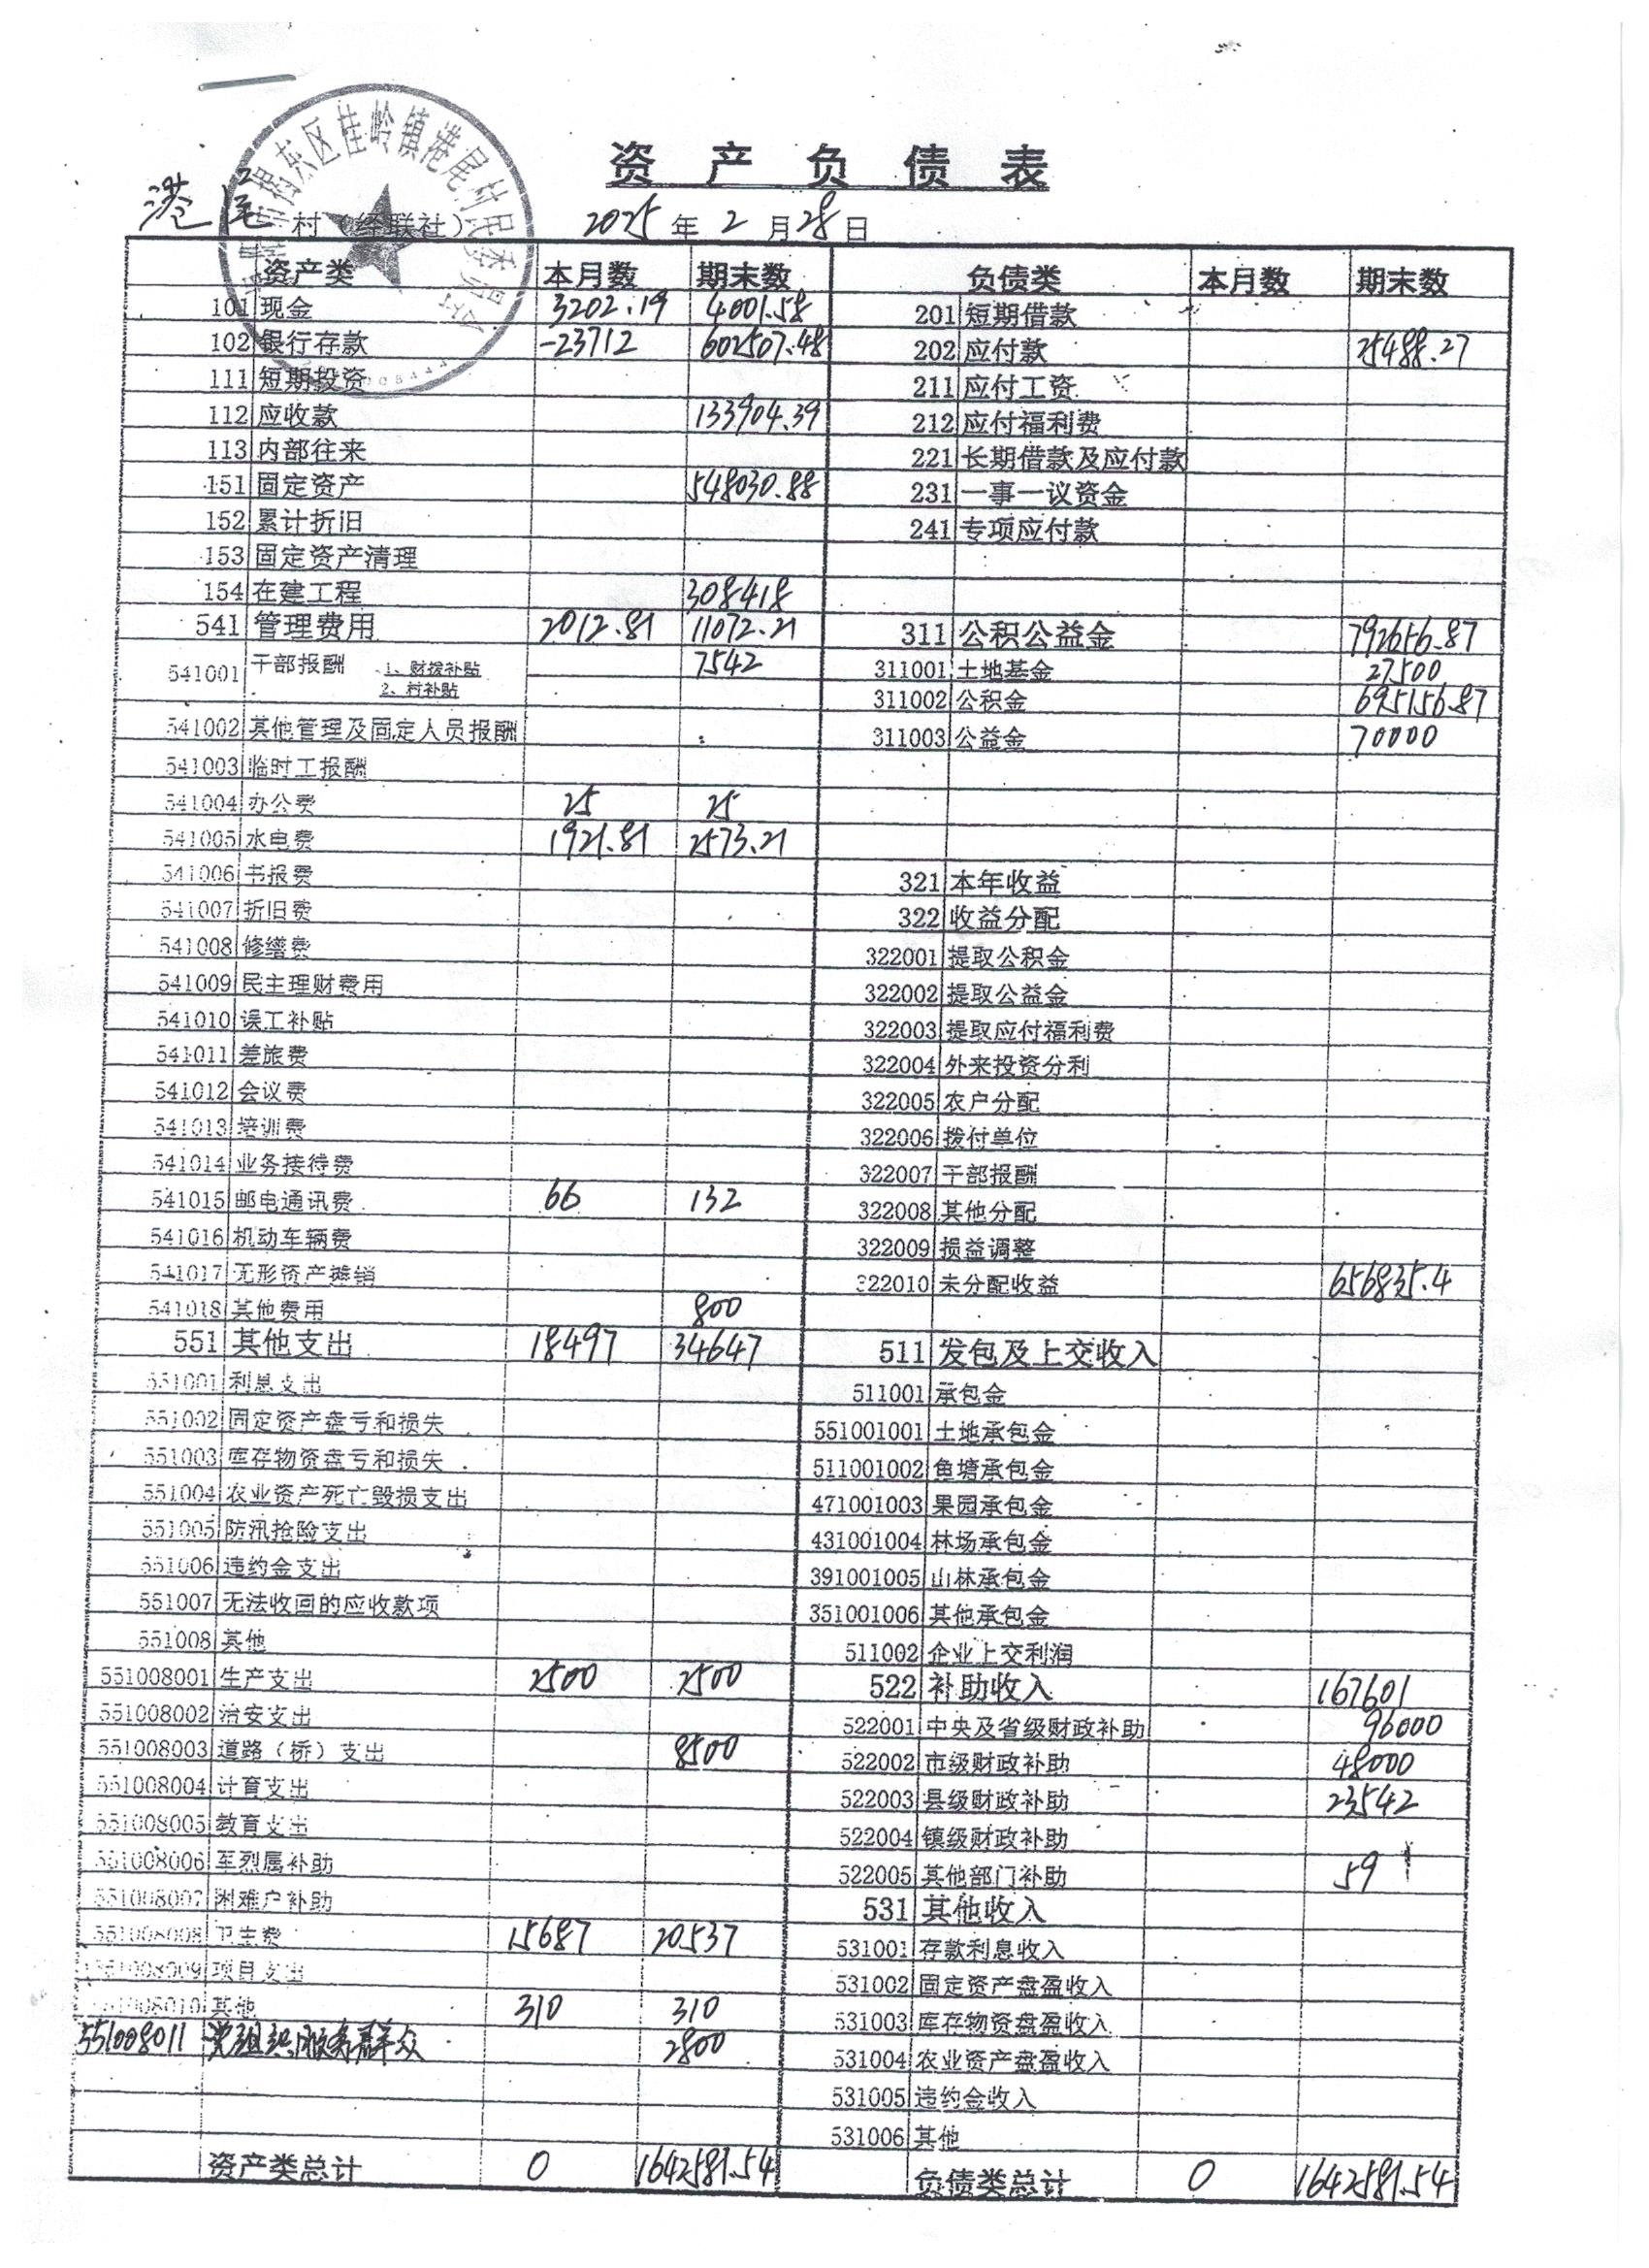 资产负债表
港尾村（经联社） 2025年2月28日
资产类 本月数 期末数 负债类 本月数 期末数
101 现金 3202.19 4001.58 201 短期借款
102 银行存款 -23712 602507.48 202 应付款 25488.27
111 短期投资 211 应付工资
112 应收款 133904.39 212 应付福利费
113 内部往来 221 长期借款及应付款
151 固定资产 548030.88 231 一事一议资金
152 累计折旧 241 专项应付款
153 固定资产清理
154 在建工程 308418
541 管理费用 2012.81 11072.21 311 公积公益金 792656.87
541001 干部报酬 1、财拨补贴 7542 311001 土地基金 27500
2、村补贴 311002 公积金 695156.87
541002 其他管理及固定人员报酬 311003 公益金 70000
541003 临时工报酬
541004 办公费 25 25
541005 水电费 1921.81 2573.21
541006 书报费 321 本年收益
541007 折旧费 322 收益分配
541008 修缮费 322001 提取公积金
541009 民主理财费用 322002 提取公益金
541010 误工补贴 322003 提取应付福利费
541011 差旅费 322004 外来投资分利
541012 会议费 322005 农户分配
541013 培训费 322006 拨付单位
541014 业务接待费 322007 干部报酬
541015 邮电通讯费 66 132 322008 其他分配
541016 机动车辆费 322009 损益调整
541017 无形资产摊销 322010 未分配收益 656835.4
541018 其他费用 800
551 其他支出 18497 34647 511 发包及上交收入
551001 利息支出 511001 承包金
551002 固定资产盘亏和损失 551001001 土地承包金
551003 库存物资盘亏和损失 511001002 鱼塘承包金
551004 农业资产死亡毁损支出 471001003 果园承包金
551005 防汛抢险支出 431001004 林场承包金
551006 违约金支出 391001005 山林承包金
551007 无法收回的应收款项 351001006 其他承包金
551008 其他 511002 企业上交利润
551008001 生产支出 2500 2500 522 补助收入 167601
551008002 治安支出 522001 中央及省级财政补助 96000
551008003 道路（桥）支出 8500 522002 市级财政补助 48000
551008004 计育支出 522003 县级财政补助 23542
551008005 教育支出 522004 镇级财政补助
551008006 军烈属补助 522005 其他部门补助 59
551008007 困难户补助 531 其他收入
551008008 卫生费 15687 20537 531001 存款利息收入
551008009 项目支出 531002 固定资产盘盈收入
551008010 其他 310 310 531003 库存物资盘盈收入
551008011 党组织服务群众 2800 531004 农业资产盘盈收入
531005 违约金收入
531006 其他
资产类总计 0 1642581.54 负债类总计 0 1642581.54
揭东区桂岭镇港尾村民委员会